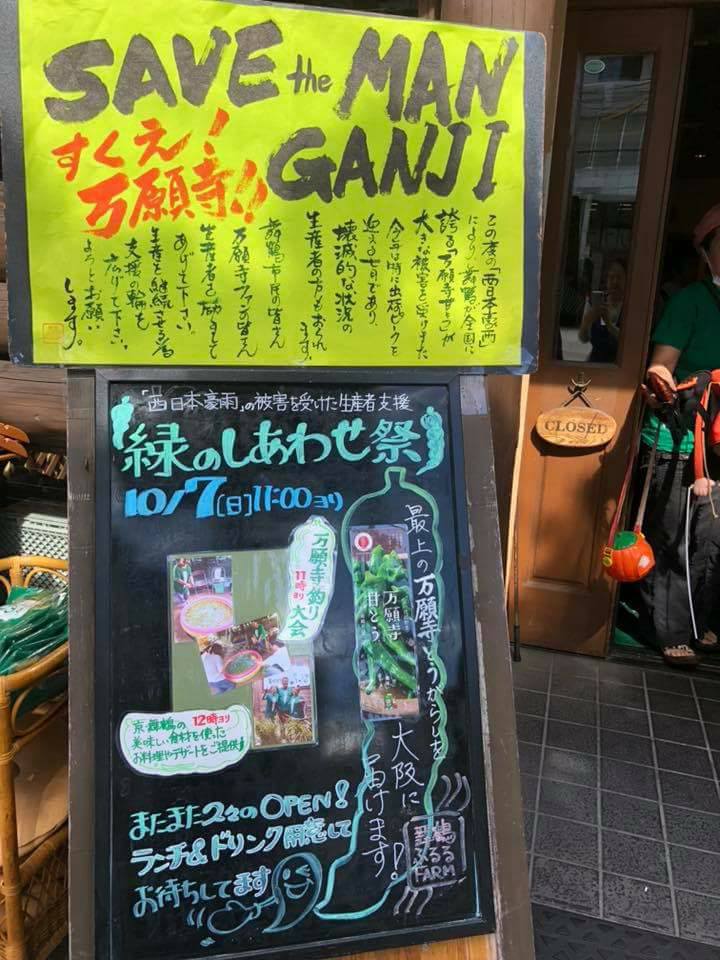 SAVE the MAN
GANJI
すくえ!
万願寺!!
この度の「西日本豪雨」
により、舞鶴が全国に
誇る「万願寺甘とう」が
大きな被害を受けました
今年は特に出荷ピークを
迎える七月であり、
壊滅的な状況の
生産者の方もおられ
ます。
舞鶴市民の皆さん
万願寺ファンの皆さん
生産者を励まして
あげて下さい。
生産を継続させる為
支援の輪を
広げて下さい。
よろしくお願い
します。
「西日本豪雨」の被害を受けた生産者支援
緑のしあわせ祭
10/7[日]11:00より
万願寺釣り
11時より
大会
最上の万願寺とうがらしを
大阪に
届けます!
万願寺
甘とう
京・舞鶴の 12時より
美味しい食材を使った
お料理やデザートをご提供!
またまた2々のOPEN!
ランチ&ドリンク用意して
お待ちしてます
ふるる
FARM
CLOSED